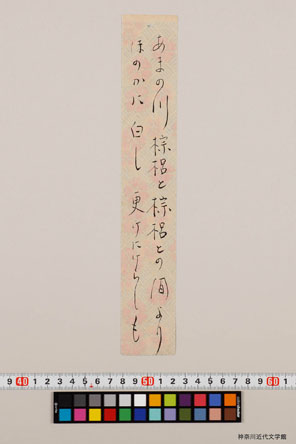 あまの川 棕梠と棕梠との間より
ほのかに白し 更けにけらしも
9 40 1 2 3 4 5 6 7 8 9 50 1 2 3 4 5 6 7 8 9 60 1
神奈川近代文学館